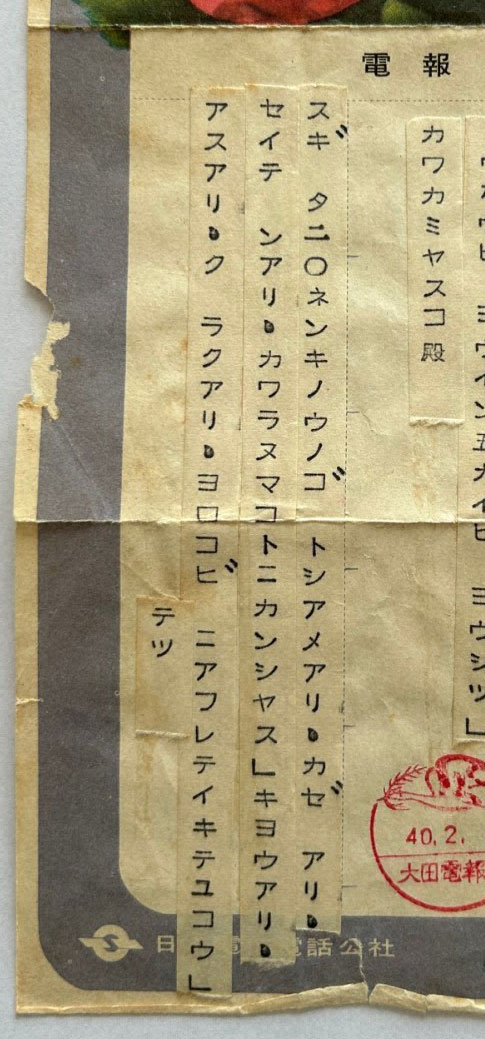 電報
ヨウシツ」
カワカミヤスコ殿
スギ タ二〇ネンキノウノゴ トシアメアリ、カゼ アリ、
セイテ ンアリ、カワラヌマコトニカンシヤス」キヨウアリ、
アスアリ、ク ラクアリ、ヨロコビ ニアフレテイキテユコウ」
テツ
40.2.
大田電報
日 電話公社